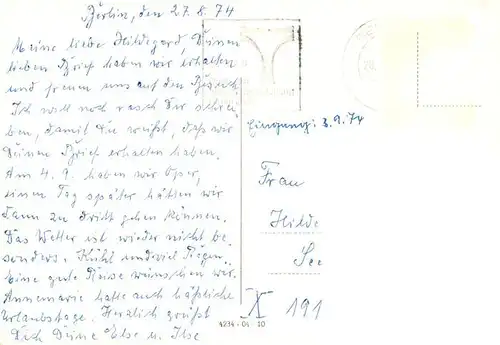 Berlin, den 27.8.74
Meine liebe Hildegard, Deinen
lieben Brief haben wir erhalten
und freuen uns auf den Besuch.
Ich will noch rasch Dir schrei-
ben, damit Du weißt, daß wir
Deinen Brief erhalten haben.
Am 4.9. haben wir Oper,
einen Tag später hätten wir
dann zu dritt gehen können.
Das Wetter ist wieder nicht be-
sonders. Kühl und viel Regen.
Eine gute Reise wünschen wir.
Annemarie hatte auch häßliche
Urlaubstage. Herzlich grüßt
Dich Deine Else u. Ilse
Eingang: 3.9.74
Frau
Hilde
See
X 191
4234 · 04 10